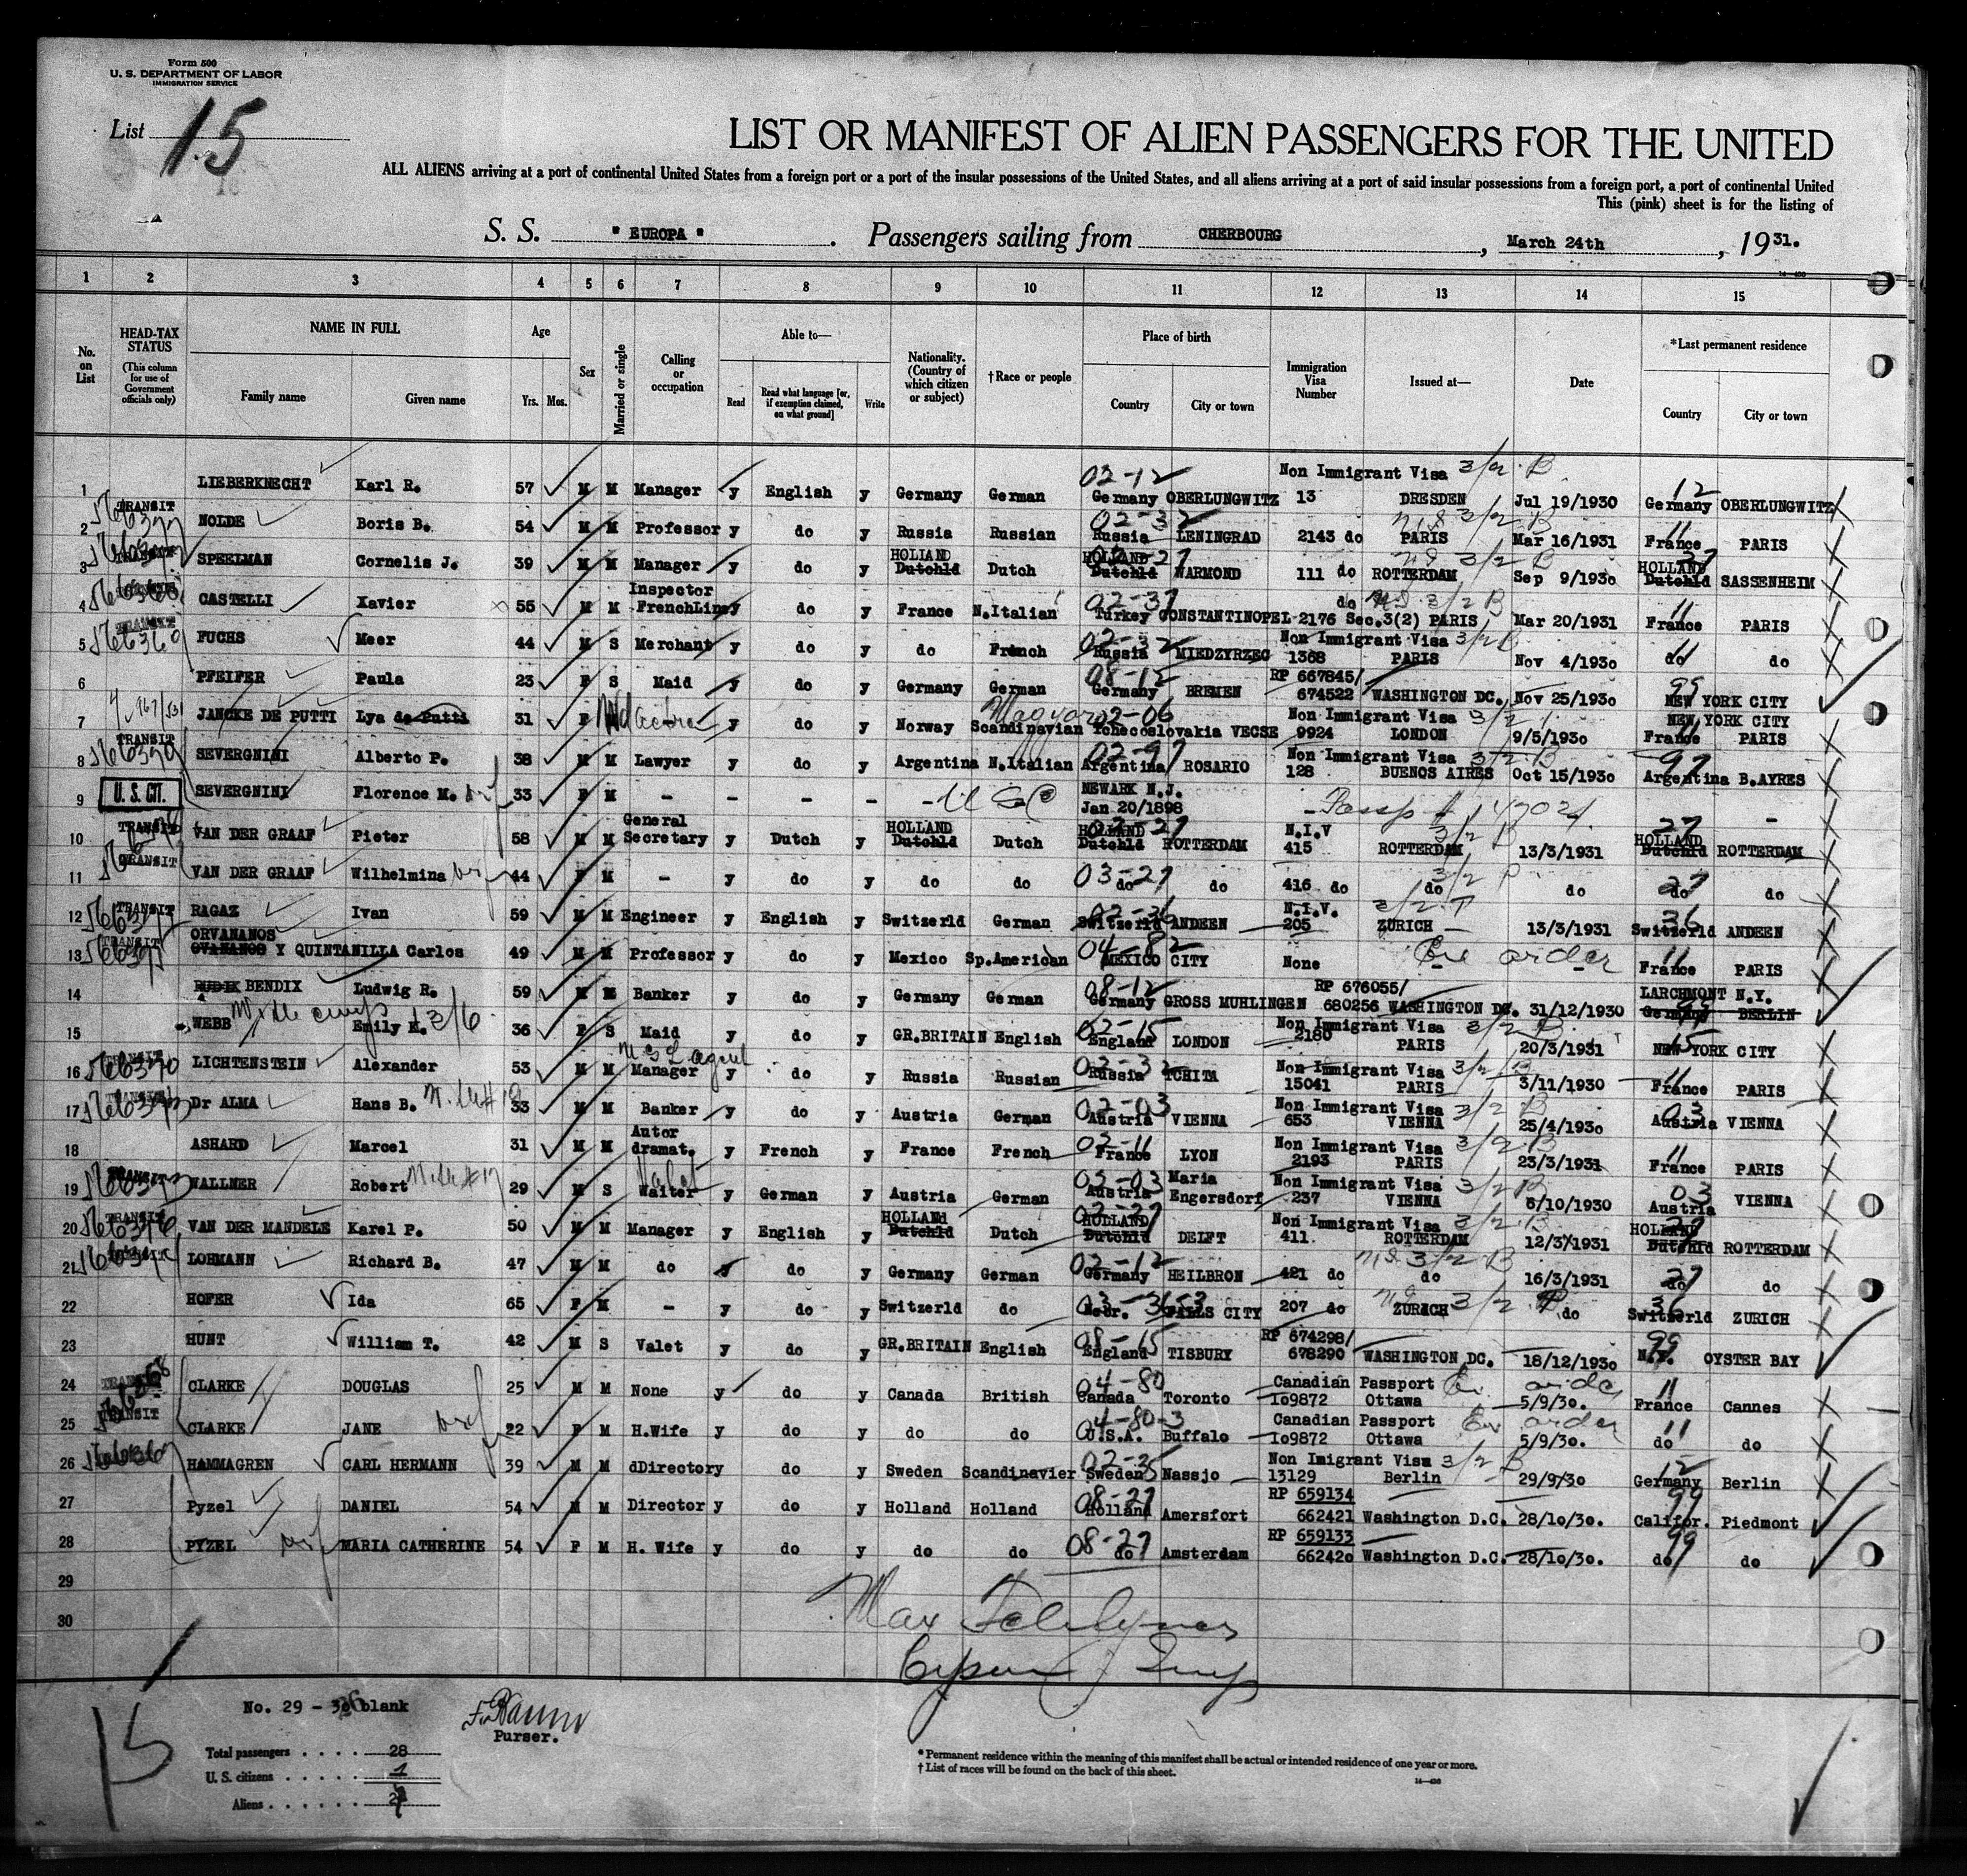 Form 500
U. S. DEPARTMENT OF LABOR
IMMIGRATION SERVICE
List 15
LIST OR MANIFEST OF ALIEN PASSENGERS FOR THE UNITED
ALL ALIENS arriving at a port of continental United States from a foreign port or a port of the insular possessions of the United States, and all aliens arriving at a port of said insular possessions from a foreign port, a port of continental United
This (pink) sheet is for the listing of
S. S. " EUROPA " . Passengers sailing from CHERBOURG , March 24th , 1931.
14—430
1 2 3 4 5 6 7 8 9 10 11 12 13 14 15
No. on List
HEAD-TAX STATUS (This column for use of Government officials only)
NAME IN FULL Family name Given name
Age Yrs. Mos.
Sex
Married or single
Calling or occupation
Able to— Read Read what language [or, if exemption claimed, on what ground] Write
Nationality. (Country of which citizen or subject)
†Race or people
Place of birth Country City or town
Immigration Visa Number
Issued at—
Date
*Last permanent residence Country City or town
1 LIEBERKNECHT Karl R. 57 M M Manager y English y Germany German 02-12 Germany OBERLUNGWITZ Non Immigrant Visa 3/2 B 13 DRESDEN Jul 19/1930 12 Germany OBERLUNGWITZ
2 TRANSIT NOLDE Boris B. 54 M M Professor y do y Russia Russian 02-32 Russia LENINGRAD 2143 do PARIS 3/2 B Mar 16/1931 11 France PARIS
3 SPEELMAN Cornelis J. 39 M M Manager y do y HOLLAND Dutchld Dutch HOLLAND Dutchld WARMOND 111 do ROTTERDAM 3/2 B Sep 9/1930 HOLLAND Dutchld SASSENHEIM
4 CASTELLI Xavier 55 M M Inspector FrenchLine y do y France N.Italian 02-37 Turkey CONSTANTINOPEL do 2176 Sec.3(2) PARIS 3/2 B Mar 20/1931 11 France PARIS
5 TRANSIT FUCHS Meer 44 M S Merchant y do y do French 02-32 Russia MIEDZYRZEC Non Immigrant Visa 3/2 B 1368 PARIS Nov 4/1930 11 do do
6 PFEIFER Paula 23 F S Maid y do y Germany German 08-12 Germany BREMEN RP 667845/ 674522 WASHINGTON DC. Nov 25/1930 99 NEW YORK CITY
7 JANCKE DE PUTTI Lya de Putti 31 F Wd Actress y do y Norway Magyar Scandinavian 02-06 Tchecoslovakia VECSE Non Immigrant Visa 3/2 9924 LONDON 9/5/1930 NEW YORK CITY France PARIS
8 TRANSIT SEVERGNINI Alberto P. 38 M M Lawyer y do y Argentina N.Italian 02-97 Argentina ROSARIO Non Immigrant Visa 3/2 B 128 BUENOS AIRES Oct 15/1930 97 Argentina B.AYRES
9 U. S. CIT. SEVERGNINI Florence M. 33 F M - - - - - U S C NEWARK N.J. Jan 20/1898 - Passp -
10 TRANSIT VAN DER GRAAF Pieter 58 M M General Secretary y Dutch y HOLLAND Dutchld Dutch HOLLAND 02-27 Dutchld ROTTERDAM N.I.V 415 ROTTERDAM 3/2 B 13/3/1931 27 HOLLAND Dutchld ROTTERDAM
11 TRANSIT VAN DER GRAAF Wilhelmina 44 F M - y do y do do 03-27 do do 416 do do 3/2 do 27 do do
12 TRANSIT RAGAZ Ivan 59 M M Engineer y English y Switzerld German 02-36 Switzerld ANDEEN N.I.V. 3/2 205 ZURICH 13/3/1931 36 Switzerld ANDEEN
13 TRANSIT ORVANANOS OVANANOS Y QUINTANILLA Carlos 49 M M Professor y do y Mexico Sp.American 04-82 MEXICO CITY None Ex order - 11 France PARIS
14 RUDIK BENDIX Ludwig R. 59 M M Banker y do y Germany German 08-12 Germany GROSS MUHLINGEN RP 676055/ 680256 WASHINGTON DC. 31/12/1930 LARCHMONT N.Y. Germany BERLIN
15 WEBB Emily K. 36 F S Maid y do y GR.BRITAIN English 02-15 England LONDON Non Immigrant Visa 3/2 B 2180 PARIS 20/3/1931 15 NEW YORK CITY
16 TRANSIT LICHTENSTEIN Alexander 53 M M Manager y do y Russia Russian 02-32 Russia TCHITA Non Immigrant Visa 3/2 B 15041 PARIS 3/11/1930 11 France PARIS
17 TRANSIT Dr ALMA Hans B. 33 M M Banker y do y Austria German 02-03 Austria VIENNA Non Immigrant Visa 3/2 B 653 VIENNA 25/4/1930 03 Austria VIENNA
18 ASHARD Marcel 31 M M Autor dramat. y French y France French 02-11 France LYON Non Immigrant Visa 3/2 B 2193 PARIS 23/3/1931 11 France PARIS
19 TRANSIT WALLNER Robert 29 M S Valet Waiter y German y Austria German Austria Maria Engersdorf Non Immigrant Visa 3/2 B 237 VIENNA 6/10/1930 03 Austria VIENNA
20 TRANSIT VAN DER MANDELE Karel P. 50 M M Manager y English y HOLLAND Dutchld Dutch HOLLAND 02-27 Dutchld DELFT Non Immigrant Visa 3/2 B 411. ROTTERDAM 12/3/1931 27 HOLLAND Dutchld ROTTERDAM
21 LOHMANN Richard B. 47 M M do y do y Germany German 02-12 Germany HEILBRON 421 do do 3/2 B 16/3/1931 27 do do
22 HOFER Ida 65 F M - y do y Switzerld do Nebr. FALLS CITY 207 do ZURICH 3/2 B do 36 Switzerld ZURICH
23 HUNT William T. 42 M S Valet y do y GR.BRITAIN English 08-15 England TISBURY RP 674298/ 678290 WASHINGTON DC. 18/12/1930 99 N.Y. OYSTER BAY
24 TRANSIT CLARKE DOUGLAS 25 M M None y do y Canada British 04-80 Canada Toronto Canadian Passport Ex order Io9872 Ottawa 5/9/30. 11 France Cannes
25 TRANSIT CLARKE JANE 22 F M H.Wife y do y do do 04-80-3 U.S.A. Buffalo Canadian Passport Ex order Io9872 Ottawa 5/9/30. 11 do do
26 HAMMAGREN CARL HERMANN 39 M M dDirectory do y Sweden Scandinavier 02-35 Sweden Nassjo Non Imigrant Visa 3/2 B 13129 Berlin 29/9/30 12 Germany Berlin
27 Pyzel DANIEL 54 M M Director y do y Holland Holland 08-27 Holland Amersfort RP 659134 662421 Washington D.C. 28/10/30. 99 Califor. Piedmont
28 PYZEL MARIA CATHERINE 54 F M H. Wife y do y do do 08-27 do Amsterdam RP 659133 662420 Washington D.C. 28/10/30. 99 do do
29
30
Max
No. 29 - 30 blank
Purser.
Total passengers . . . . 28
U. S. citizens . . . . . 1
Aliens . . . . . .
15
* Permanent residence within the meaning of this manifest shall be actual or intended residence of one year or more.
† List of races will be found on the back of this sheet.
14—430